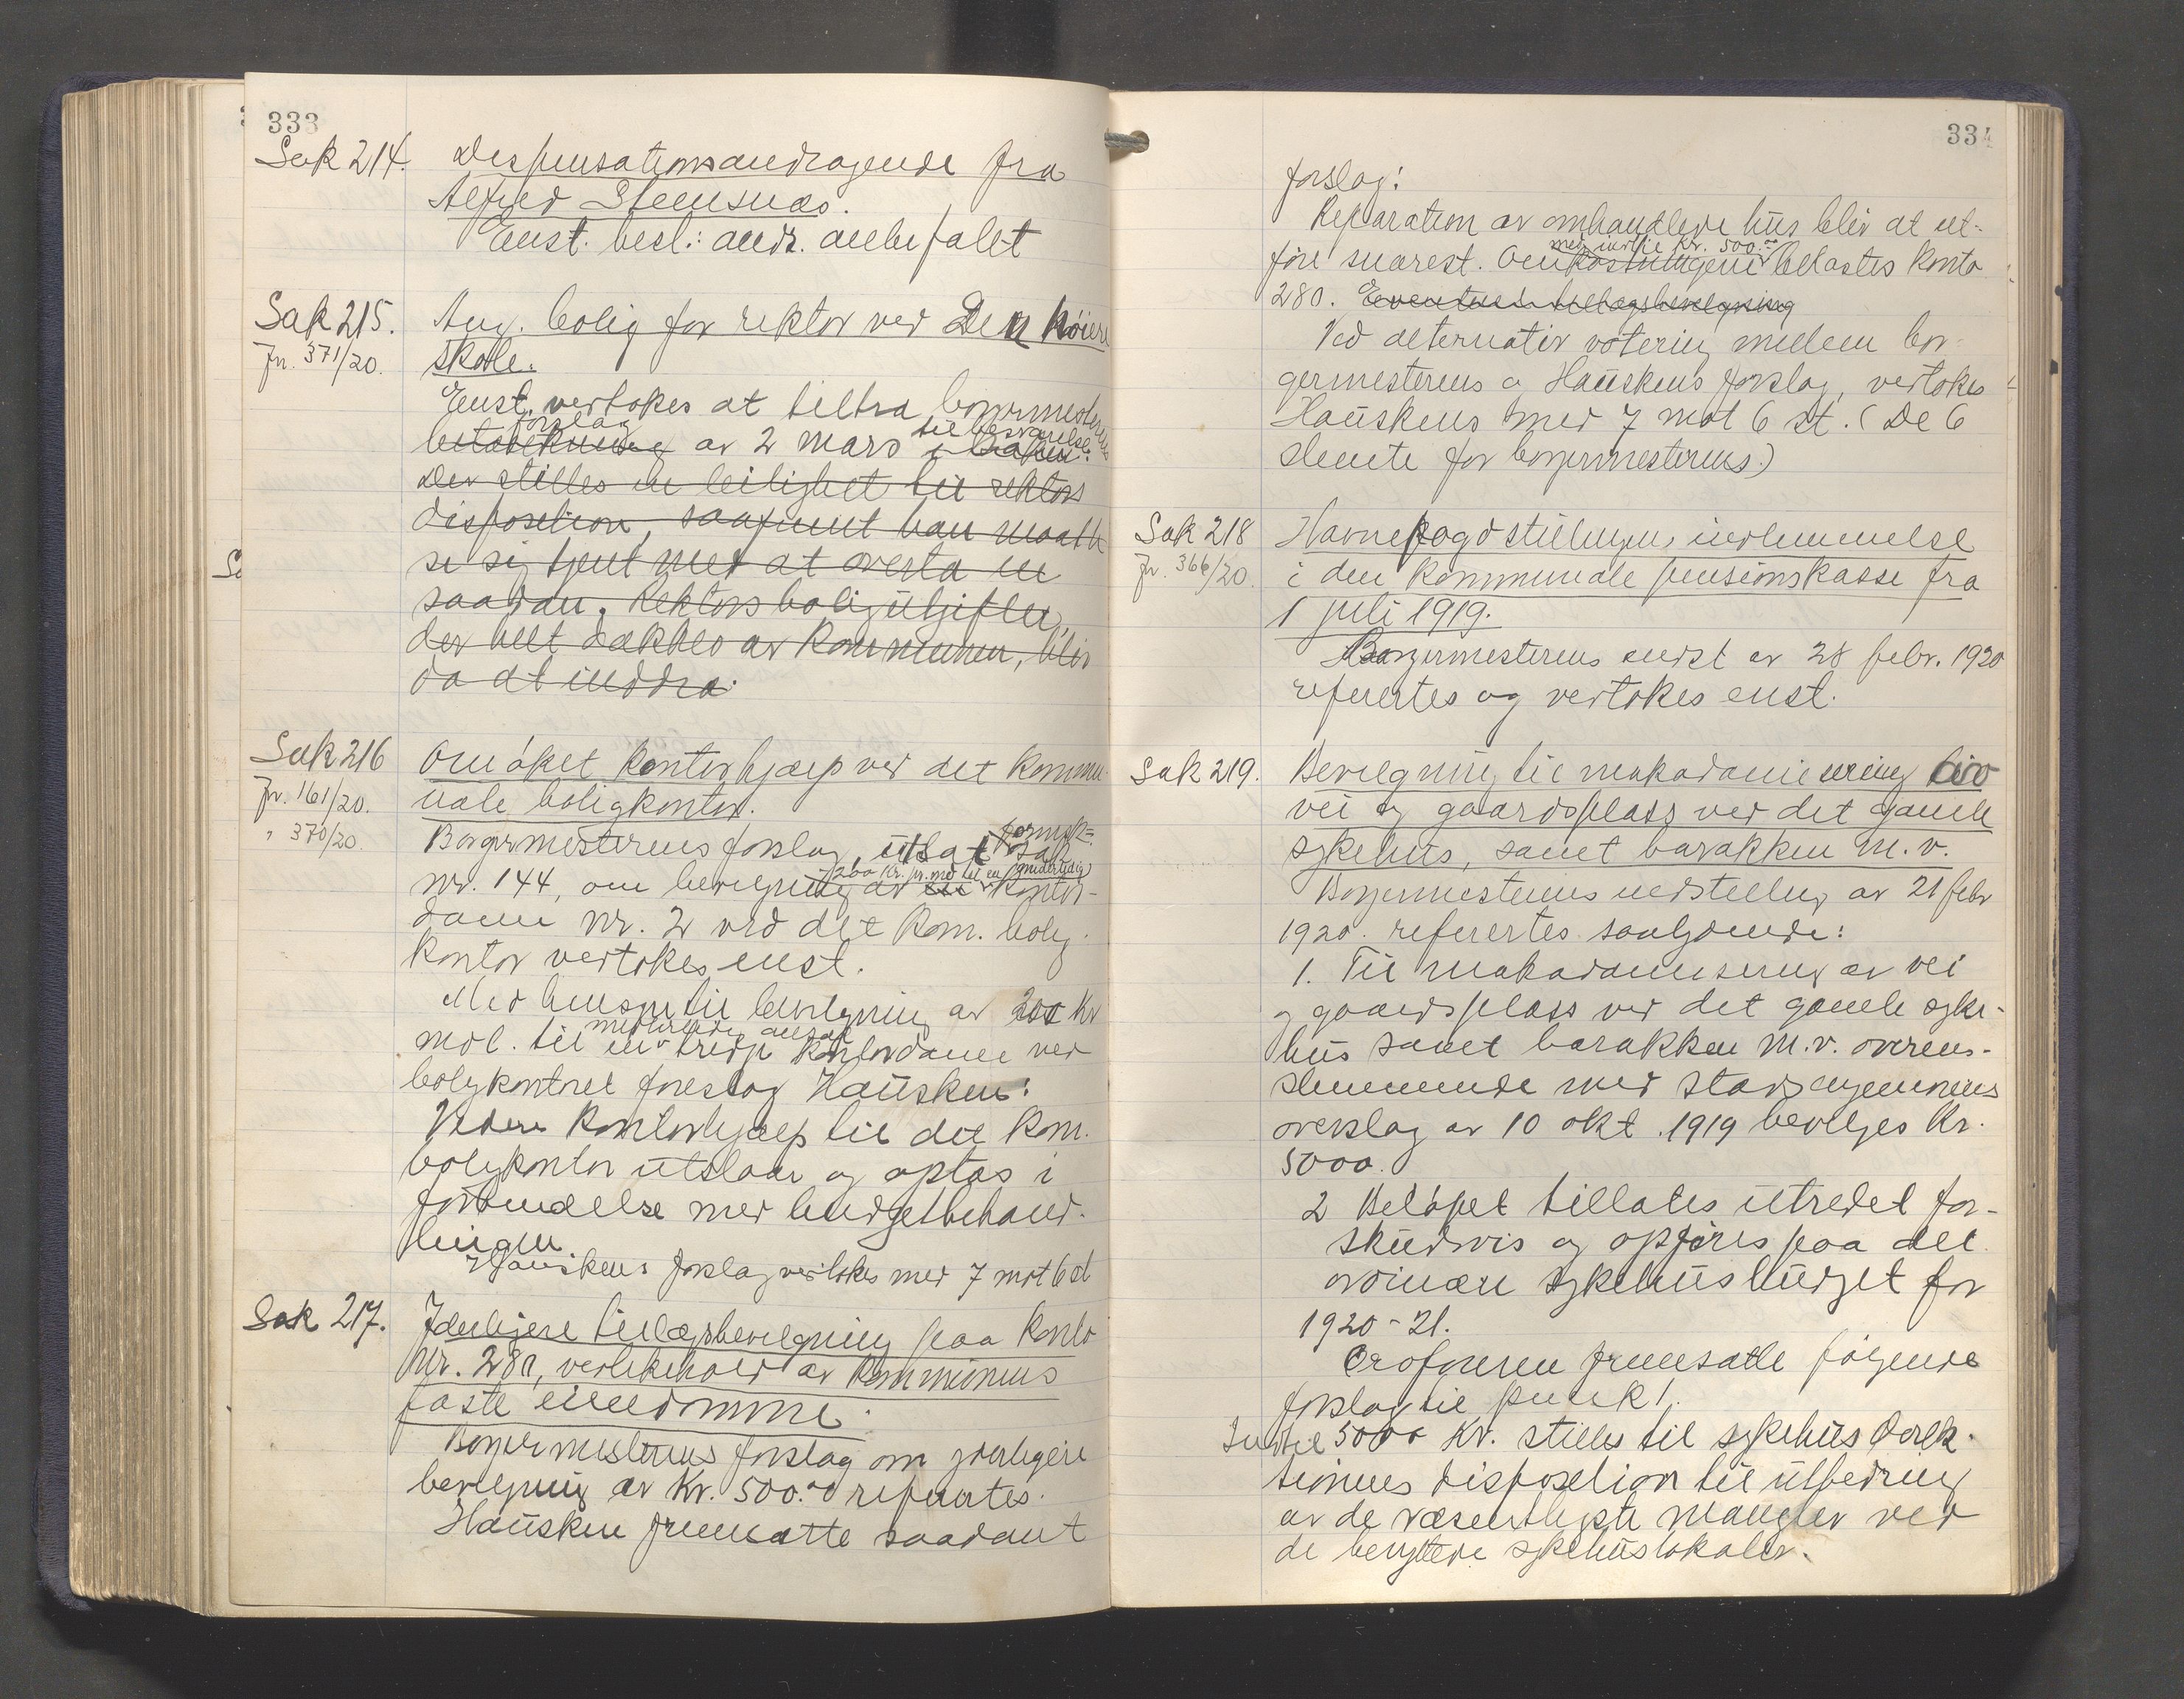 333
Sak 214. Dispensationsandragende fra
Alfred Steensnæs.
Enst. besl.: andr. anbefalet
Sak 215. Ang. bolig for rektor ved Den høiere
Jr. 371/20. skole.
Enst. vertokes at tiltra borgermesterens
forslag til besvarelse
betænkning av 2 mars i saken:
Der stilles en leilighet til rektors
disposition, saafremt han maatte
se sig tjent med at overta en
saadan. Rektors boligutgifter,
der helt dækkes av kommunen, blir
da at inddra.
Sak 216 Om øket kontorhjælp ved det kommu-
Jr. 161/20. nale boligkontor.
" 370/20.
Borgermesterens forslag, utsat formsk=
sak
nr. 144, om bevilgning av en kontor-
200 kr. pr. md til en midlertidig
dame nr. 2 ved det kom. bolig-
kontor vertokes enst.
Med hensyn til bevilgning av 200 kr
mdl. til en tredje kontordame ved
midlertidig ansat
boligkontoret foreslog Hausken:
Videre kontorhjælp til det kom.
boligkontor utstaar og optas i
forbindelse med budgetbehand-
lingen.
Hauskens forslag vertokes med 7 mot 6 st
Sak 217. Yderligere tillægsbevilgning paa konto
Nr. 280, vedlikehold av kommunens
faste eiendomme.
Borgermesterens forslag om yderligere
bevilgning av Kr. 500.00 refertes.
Hausken fremsatte saadant
334
forslag:
Reparation av omhandlede hus blir at ut-
med indtil Kr. 500.00
føre snarest. Omkostningene belastes konto
280. Eventuel tillægsbevilgning
Ved alternativ votering mellem bor-
germesterens og Hauskens forslag, vertokes
Hauskens med 7 mot 6 st. (De 6
stemte for borgermesterens.)
Sak 218 Havnefogdstillingens indlemmelse
Jr. 366/20. i den kommunale pensionskasse fra
1 juli 1919.
Borgermesterens indst av 28 febr. 1920
refertes og vertokes enst.
Sak 219. Bevilgning til makadamisering av
vei og gaardsplass ved det gamle
sykehus, samt barakken m.v.
Borgermesterens indstilling av 21 febr
1920. refertes saalydende:
1. Til makadamisering av vei
og gaardsplass ved det gamle syke-
hus samt barakken m.v. overens-
stemmende med stadsingeniørens
overslag av 10 okt. 1919 bevilges Kr.
5000.
2 Beløpet tillates utredet for-
skudvis og opføres paa det
ordinære sykehusbudget for
1920-21.
Ordføreren fremsatte følgende
forslag til punkt 1.
Indtil 5000 Kr. stilles til sykehusdirek-
tionens disposition til utbedring
av de væsentligste mangler ved
de benyttede sykehuslokaler.